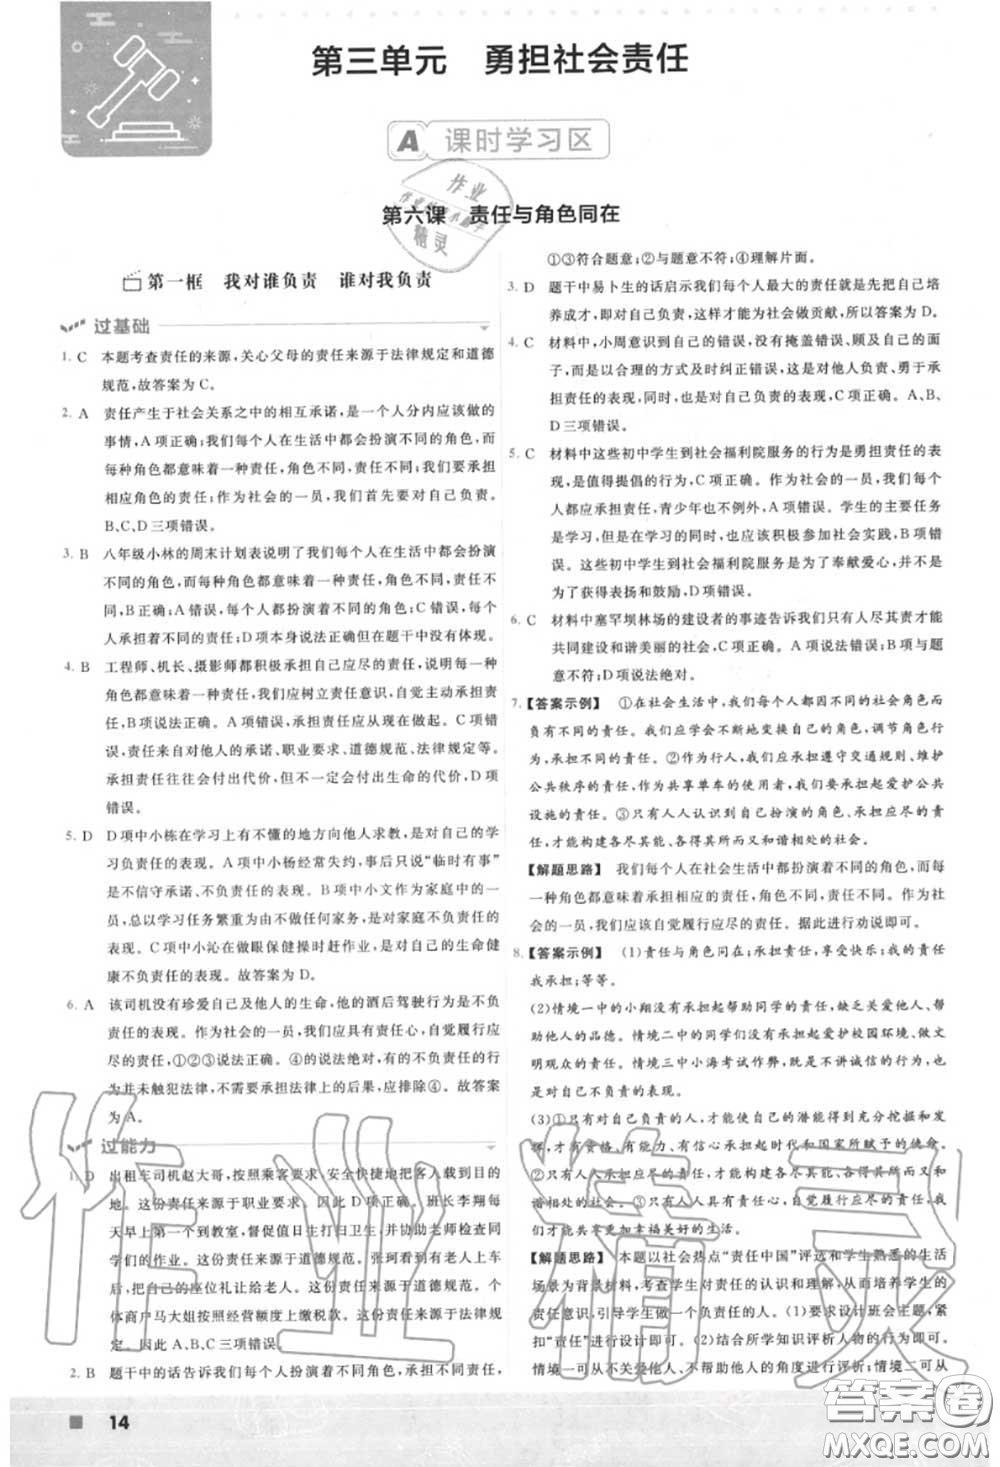 第三单元 勇担社会责任
A 课时学习区
第六课 责任与角色同在
第一框 我对谁负责 谁对我负责
过基础
1. C 本题考查责任的来源,关心父母的责任来源于法律规定和道德
规范,故答案为 C。
2. A 责任产生于社会关系之中的相互承诺,是一个人分内应该做的
事情,A 项正确;我们每个人在生活中都会扮演不同的角色,而
每种角色都意味着一种责任,在履行每种责任时,我们要承担
相应角色的责任;作为社会的一员,我们首先要对自己负责。
B、C、D 三项错误。
3. B 八年级小林的周末计划表说明了我们每个人在生活中都会扮演
不同的角色,而每种角色都意味着一种责任,角色不同,责任不
同,B 正确;A 错误,每个人都扮演着不同的角色;C 错误,每个
人承担着不同的责任;D 项本身说法正确但在题干中没有体现。
4. B 工程师、机长、摄影师都积极承担自己应尽的责任,说明每一种
角色都意味着一种责任,我们应树立责任意识,自觉承担应尽的
责任,B 项说法正确。A 项错误,承担责任应从现在做起。C 项错
误,责任来自对他人的承诺、职业要求、道德规范、法律规定等。
承担责任往往会付出代价,但不一定是付出生命的代价,D 项
错误。
5. D D 项中小栋在学习上有不懂的地方向他人求教,是对自己的学
习负责任的表现。A 项中小杨经常失约,事后只说“临时有事”
是不信守承诺、不负责任的表现。B 项中小文作为家庭中的一
员,总以学习任务繁重为由不做任何家务,是对家庭不负责任的
表现。C 项中小沁在做眼保健操时赶作业,是对自己的生命健
康不负责任的表现。故答案为 D。
6. A 该司机没有珍爱自己及他人的生命,他的酒后驾驶行为是不负
责任的表现。作为社会的一员,我们要有责任心,自觉履行应
尽的责任,①②③说法正确。④的说法绝对,有些不负责任的行
为并未触犯法律,不需要承担法律上的后果,应排除④。故答案
为 A。
过能力
1. D 出租车司机赵大哥,按照乘客要求,安全快捷地把客人载到目的
地。这份责任来源于职业要求。因此 D 项正确。班长李翔每
天早上第一个到教室,督促值日生打扫卫生,并协助老师检查同
学们的作业。这份责任来源于
有老人上车后,
自己的座位礼让给老人。这份责任来源于道德规范。个
体商户马大姐按照经营额度上缴税款。这份责任来源于法律规
定。故 A、B、C 三项错误。
2. B 题干中的话告诉我们每个人扮演着不同角色,承担不同的责任,
①③符合题意;②与题意不符;④理解片面。
3. D 题干中易卜生的话启示我们每个人最大的责任就是先把自己培
养成才,即对自己负责,这样才能为社会做贡献,所以答案为 D。
4. C 材料中,小周意识到自己的错误,没有掩盖错误、顾及自己的形
象,而是以合理的方式及时纠正错误,这是对他人负责、勇于承
担责任的表现,同时,也是对自己负责的表现,C 项正确。A、B、
D 三项错误。
5. C 材料中这些初中学生到社会福利院服务的行为是勇担责任的表
现,是值得提倡的行为,C 项正确。A 项错误,在社会中,我们每个
人都应承担责任,青少年也不例外,A 项错误。学生的主要任务
是学习,但在学习的同时,也应该积极参与社会实践,B 项
错误。这些初中学生到社会福利院服务是为了奉献爱心,而不是
为了获得表扬和鼓励,D 项错误。
6. C 材料中塞罕坝林场的建设者的事迹告诉我们只有人人尽责才能
共同建设和谐美丽的社会,C 项正确。A 项说法错误;B 项与题
意不符;D 项说法绝对。
7. 【答案示例】 ①在社会生活中,我们每个人都因不同的社会角色而负
有不同的责任。我们要学会不断地变换自己的角色,调节角色行
为,承担不同的责任。②作为行人,我们有责任遵守交通规则、维护
公共秩序的责任;作为共享单车的使用者,我们有责任爱护公共
设施的责任。③只有人人认识到自己扮演的角色,承担应尽的责
任,才能构建各尽其能、各得其所又和谐相处的社会。
【解题思路】 我们每个人在社会生活中都扮演着不同的角色,而每
一种角色都意味着承担相应的责任,角色不同,责任不同。作为社
会的一员,我们应该自觉履行应尽的责任。据此进行劝说即可。
8. 【答案示例】 (1)责任与角色同在;承担责任,享受快乐;我的责任
我承担;等等。
(2)情境一中的小翔没有承担起帮助同学的责任,缺乏关爱他人、帮
助他人的品德。情境二中的同学们没有承担起爱护校园环境、做文
明观众的责任。情境三中小海考试作弊,既是不讲诚信的行为,也
是对自己不负责任的表现。
(3)①只有对自己负责的人,才能使自己的潜能得到充分挖掘和发
挥,才有资格、有能力、有信心承担起时代和国家所赋予的使命。
②只有人人都具有责任心,自觉承担应尽的责任,才能构建各尽其能、各得其所又和
谐相处的社会。③只有人人都具有责任心,自觉履行应尽的责任,我
们才能共享更加幸福美好的生活。
【解题思路】 本题以社会热点“责任中国”评选和学生熟悉的生活
场景为背景材料,考查学生对责任的认识和理解,从而培养学生的
责任意识,引导学生做一个负责任的人。(1)要求设计班会主题,紧
扣“责任”进行即可。(2)结合所学知识评析人物的行为,情境一可从
不关爱他人、不帮助他人的角度进行评析;情境二可从
14
作业精灵
答案圈
MXQE.COM